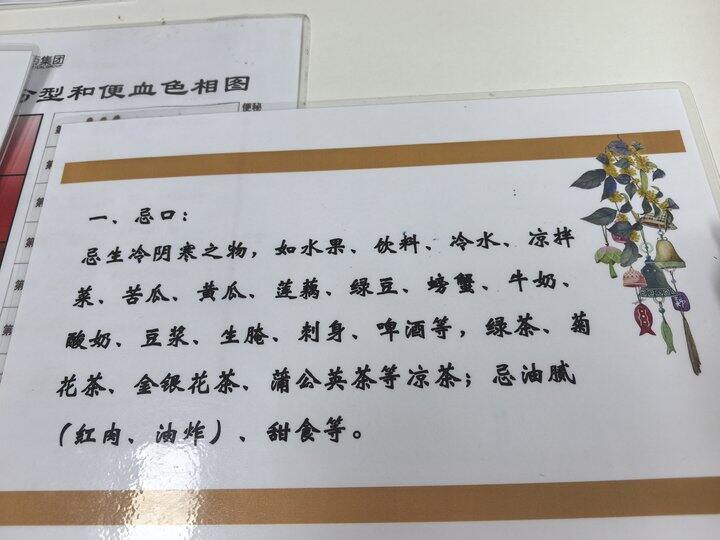 集团
分型和便血色相图
便秘
第
第
第
第
第
第
一、忌口：
忌生冷阴寒之物，如水果、饮料、冷水、凉拌
菜、苦瓜、黄瓜、莲藕、绿豆、螃蟹、牛奶、
酸奶、豆浆、生腌、刺身、啤酒等，绿茶、菊
花茶、金银花茶、蒲公英茶等凉茶；忌油腻
（红肉、油炸）、甜食等。